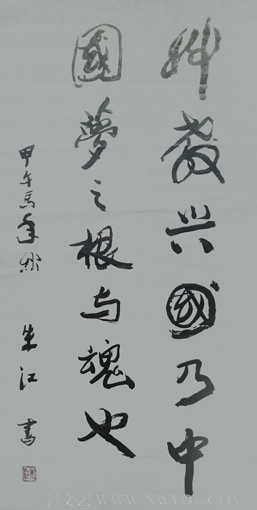 科教兴國乃中
國夢之根与魂也
甲午马年秋 朱江 書